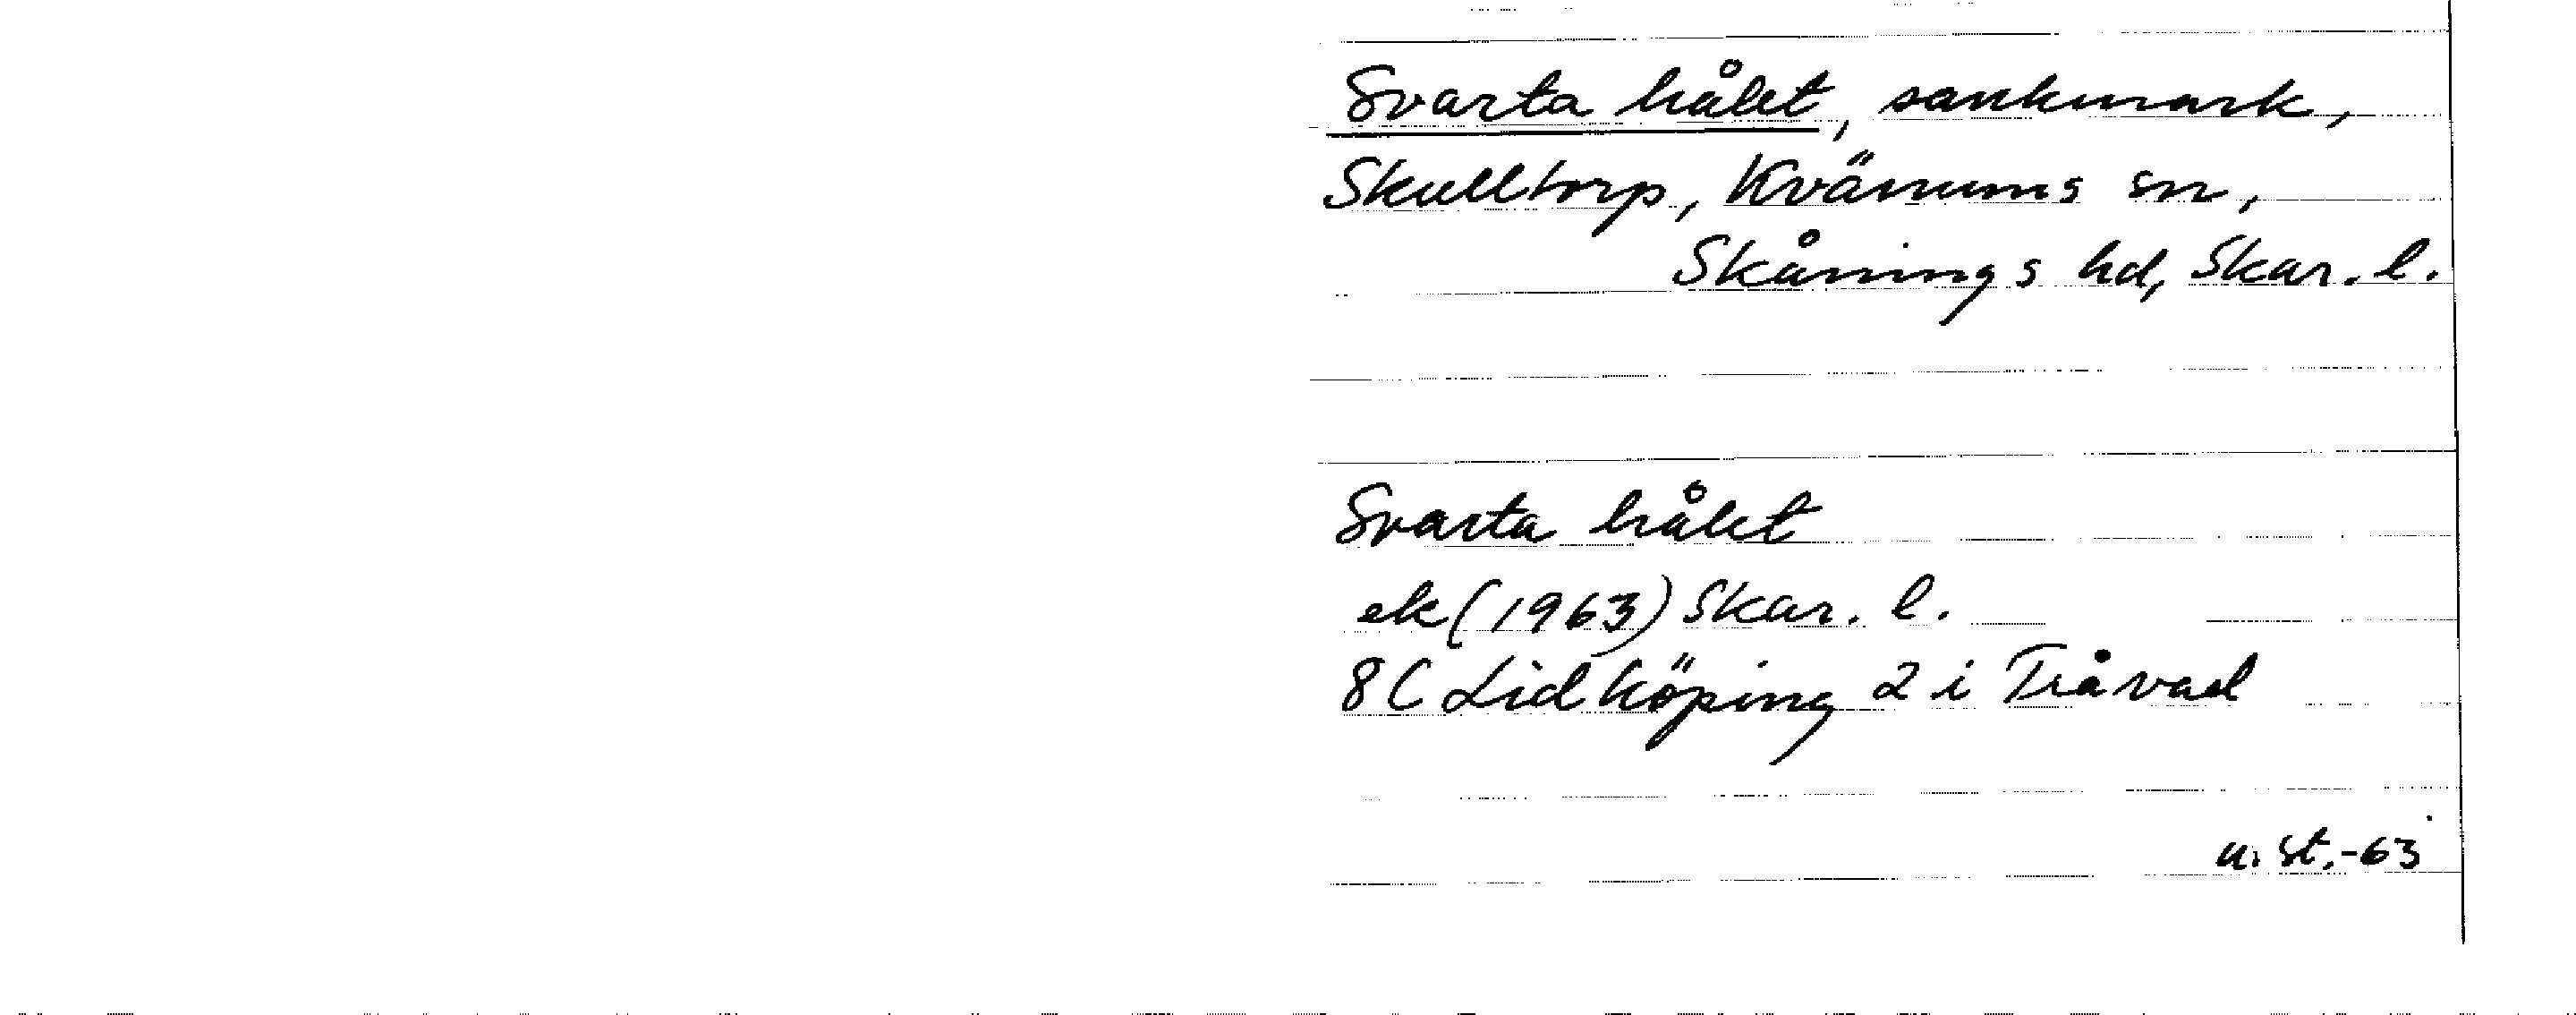 Svarta hålet, sankmark,
Skulltorp, Kvänums sn,
Skånings hd, Skar. l.
Svarta hålet
ek (1963) Skar. l.
8C Lidköping 2 i Tråvad
u. st. -63